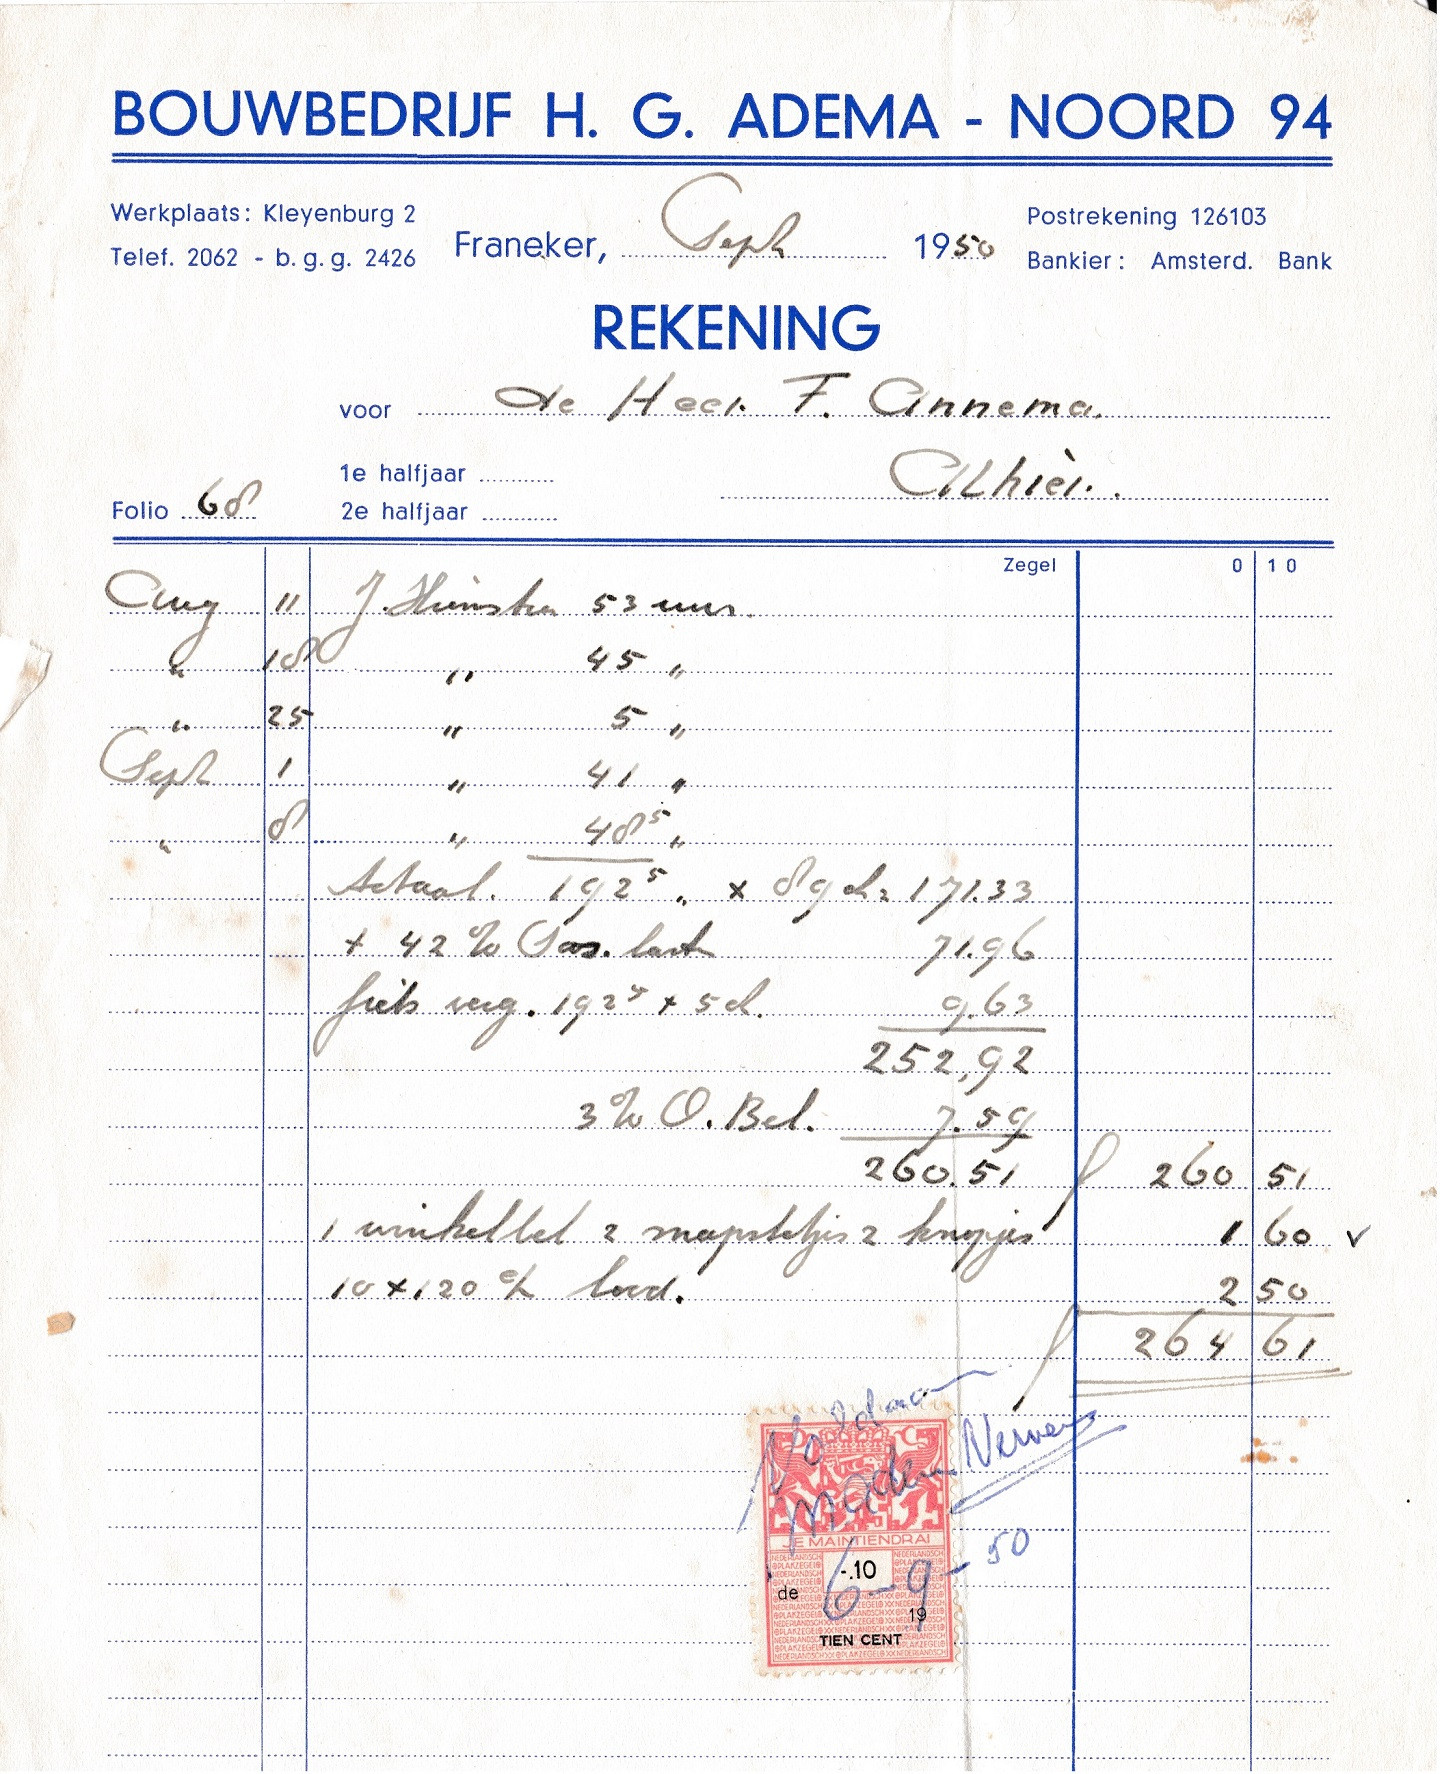 BOUWBEDRIJF H. G. ADEMA - NOORD 94
Werkplaats: Kleyenburg 2
Telef. 2062 - b. g. g. 2426
Franeker, Sept 1950
Postrekening 126103
Bankier: Amsterd. Bank
REKENING
voor de Heer. F. Annema.
1e halfjaar
Alhier.
Folio 68
2e halfjaar
Zegel 0 10
Aug 11 J. Hiemstra 53 uur.
" 18 " 45 "
" 25 " 5 "
Sept 1 " 41 "
" 8 " 48⁵ "
totaal. 192⁵ " x 89 ct = 171.33
+ 42 % Soc. last 71.96
fiets verg. 192⁵ x 5 ct. 9.63
252,92
3 % O. Bel. 7.59
260.51 f 260 51
1 winkel 2 2 knopjes 1 60 v
10 x 120 lood. 2 50
f 264 61
Voldaan
JE MAINTIENDRAI
-.10
de 19
TIEN CENT
6-9-50